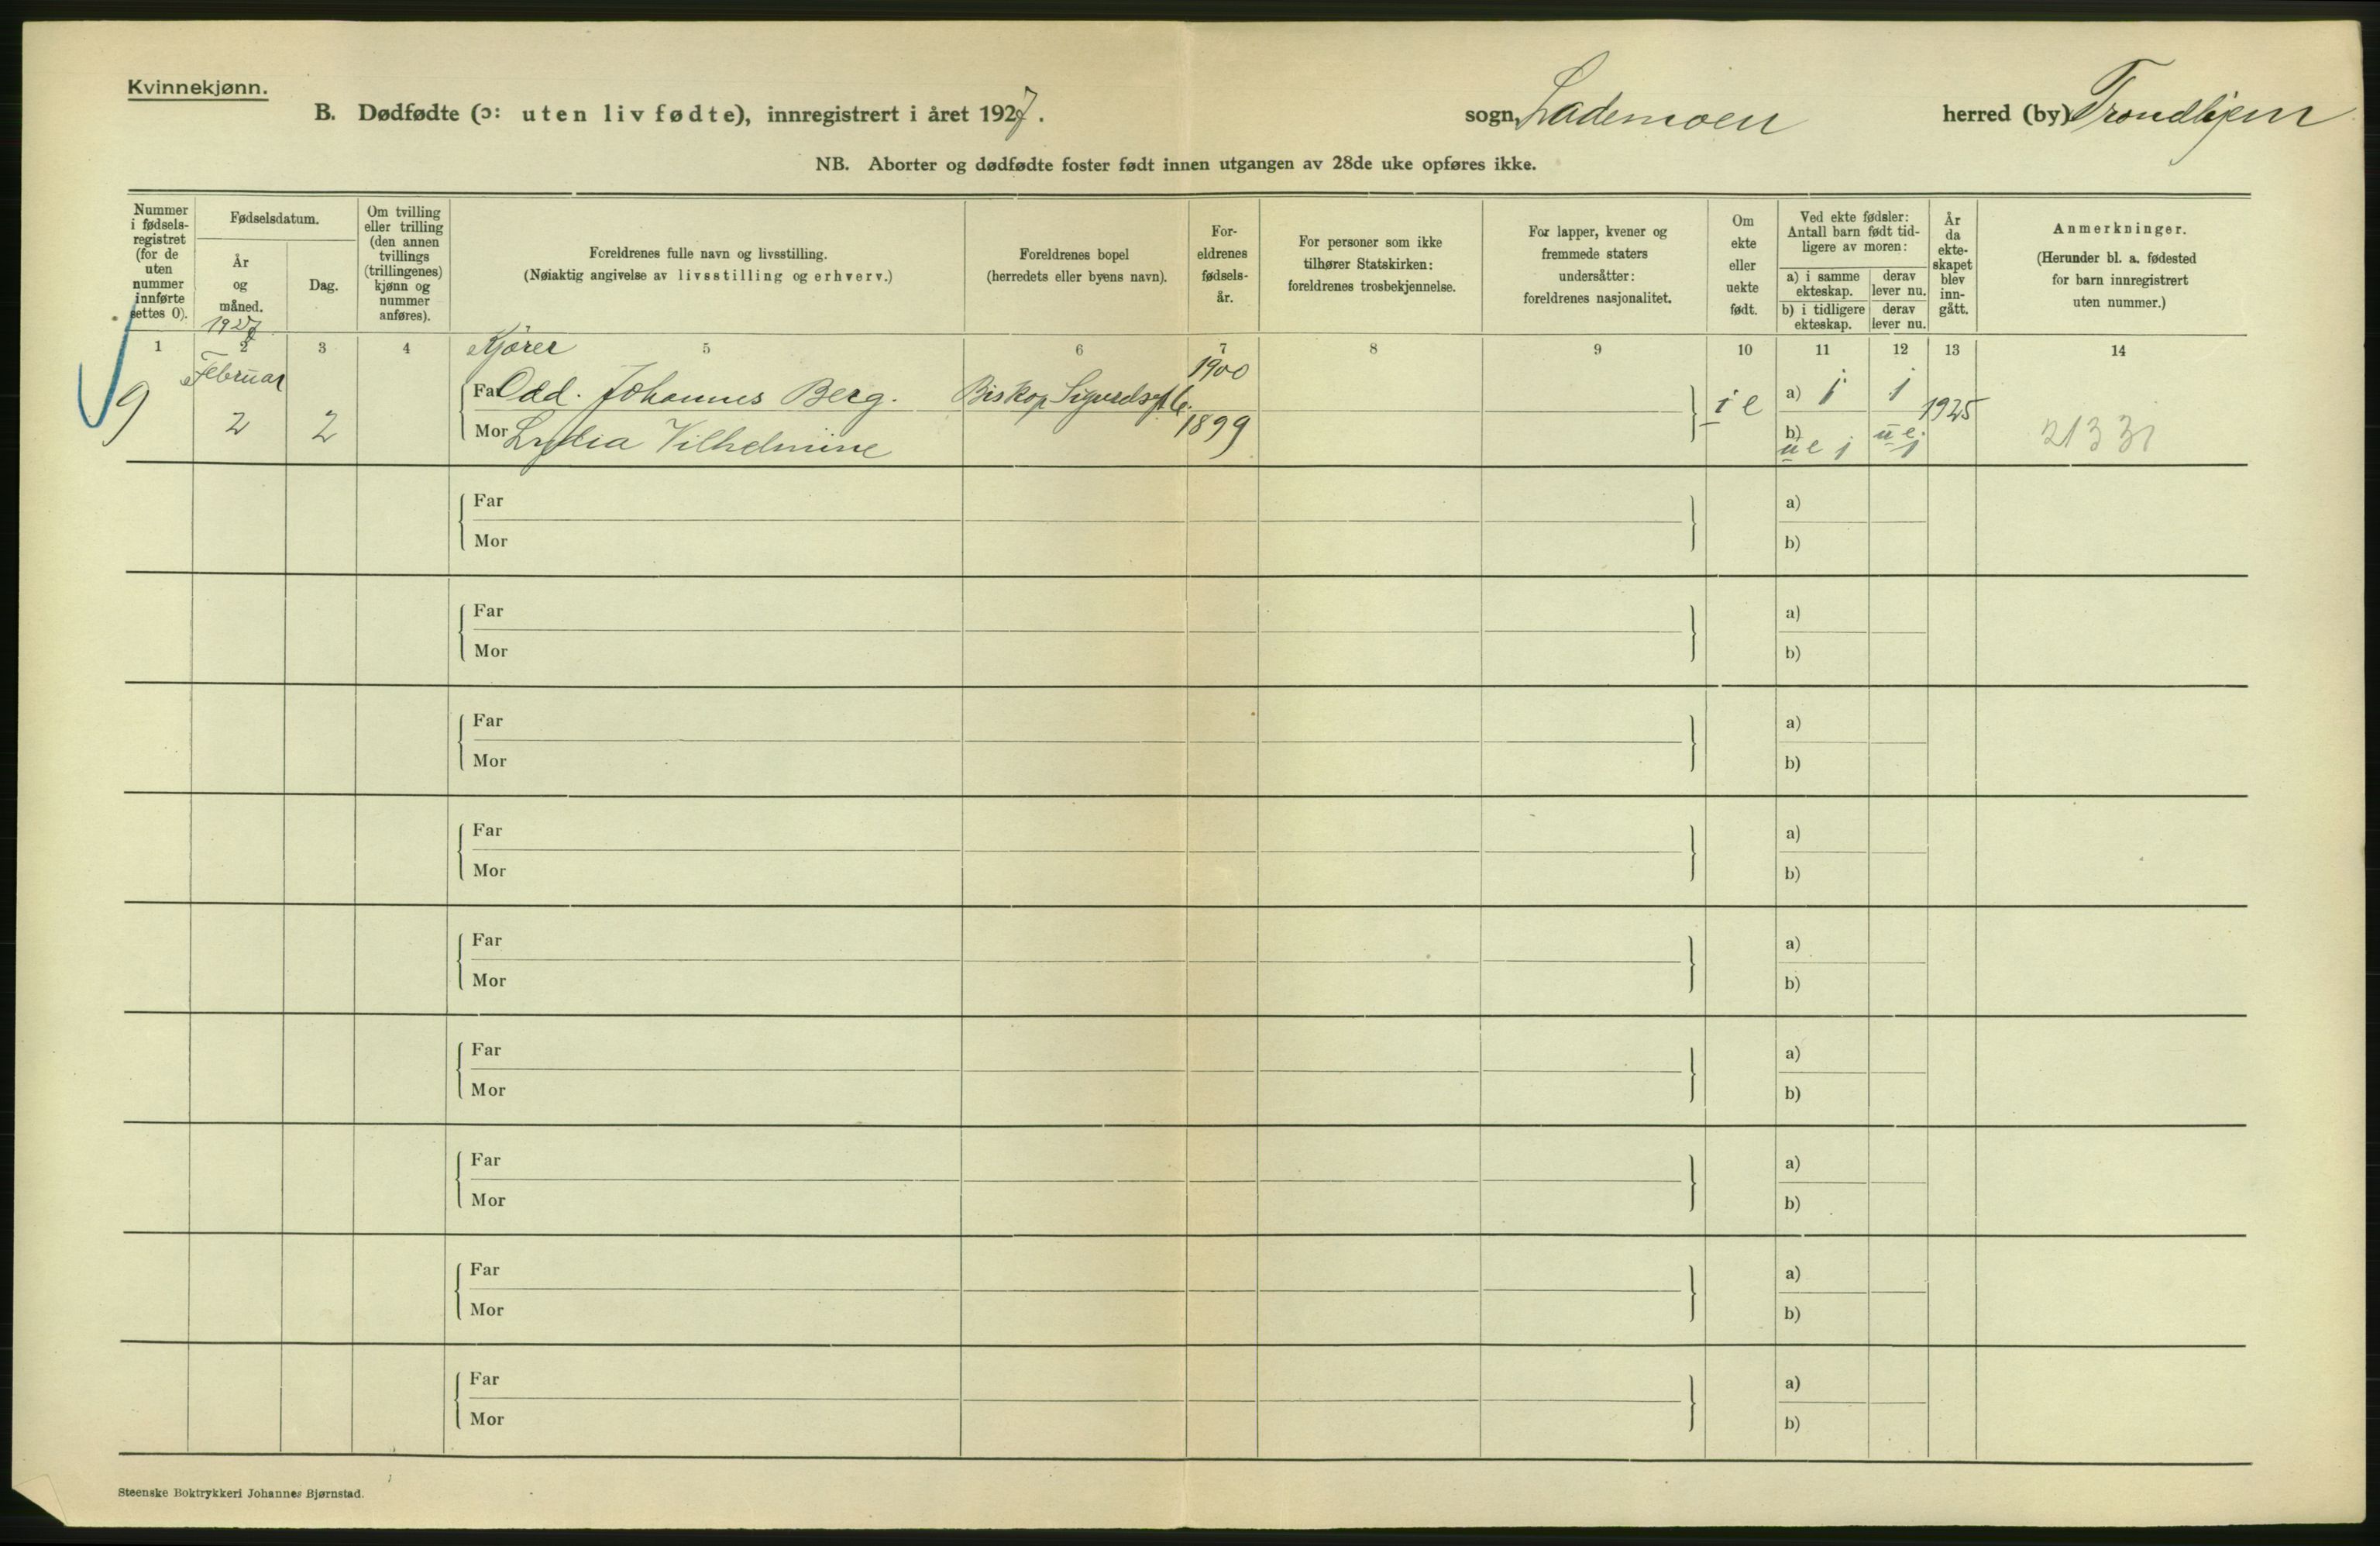 Kvinnekjønn.
B. Dødfødte (ɔ: uten liv fødte), innregistrert i året 1927.
sogn, Lademoen herred (by) Trondhjem
NB. Aborter og dødfødte foster født innen utgangen av 28de uke opføres ikke.
Nummer i fødsels-registret (for de uten nummer innførte settes 0).
Fødselsdatum.
År og måned.
1927
Dag.
Om tvilling eller trilling (den annen tvillings (trillingenes) kjønn og nummer anføres).
Foreldrenes fulle navn og livsstilling.
(Nøiaktig angivelse av livsstilling og erhverv.)
Foreldrenes bopel
(herredets eller byens navn).
For-eldrenes fødsels-år.
For personer som ikke tilhører Statskirken: foreldrenes trosbekjennelse.
For lapper, kvener og fremmede staters undersåtter: foreldrenes nasjonalitet.
Om ekte eller uekte født.
Ved ekte fødsler: Antall barn født tid-ligere av moren:
a) i samme ekteskap.
derav lever nu.
b) i tidligere ekteskap.
derav lever nu.
År da ekte-skapet blev inn-gått.
Anmerkninger.
(Herunder bl. a. fødested for barn innregistrert uten nummer.)
1 2 3 4 5 6 7 8 9 10 11 12 13 14
Kjører
Februar
9 2 2
Far Odd. Johannes Berg. Biskop Sigurdsgt 6. 1900 i e a) 1 1 1925
Mor Lydia Vilhelmine 1899 b) u e 1 u e. 1
2133
Far a)
Mor b)
Far a)
Mor b)
Far a)
Mor b)
Far a)
Mor b)
Far a)
Mor b)
Far a)
Mor b)
Far a)
Mor b)
Far a)
Mor b)
Far a)
Mor b)
Steenske Boktrykkeri Johannes Bjørnstad.